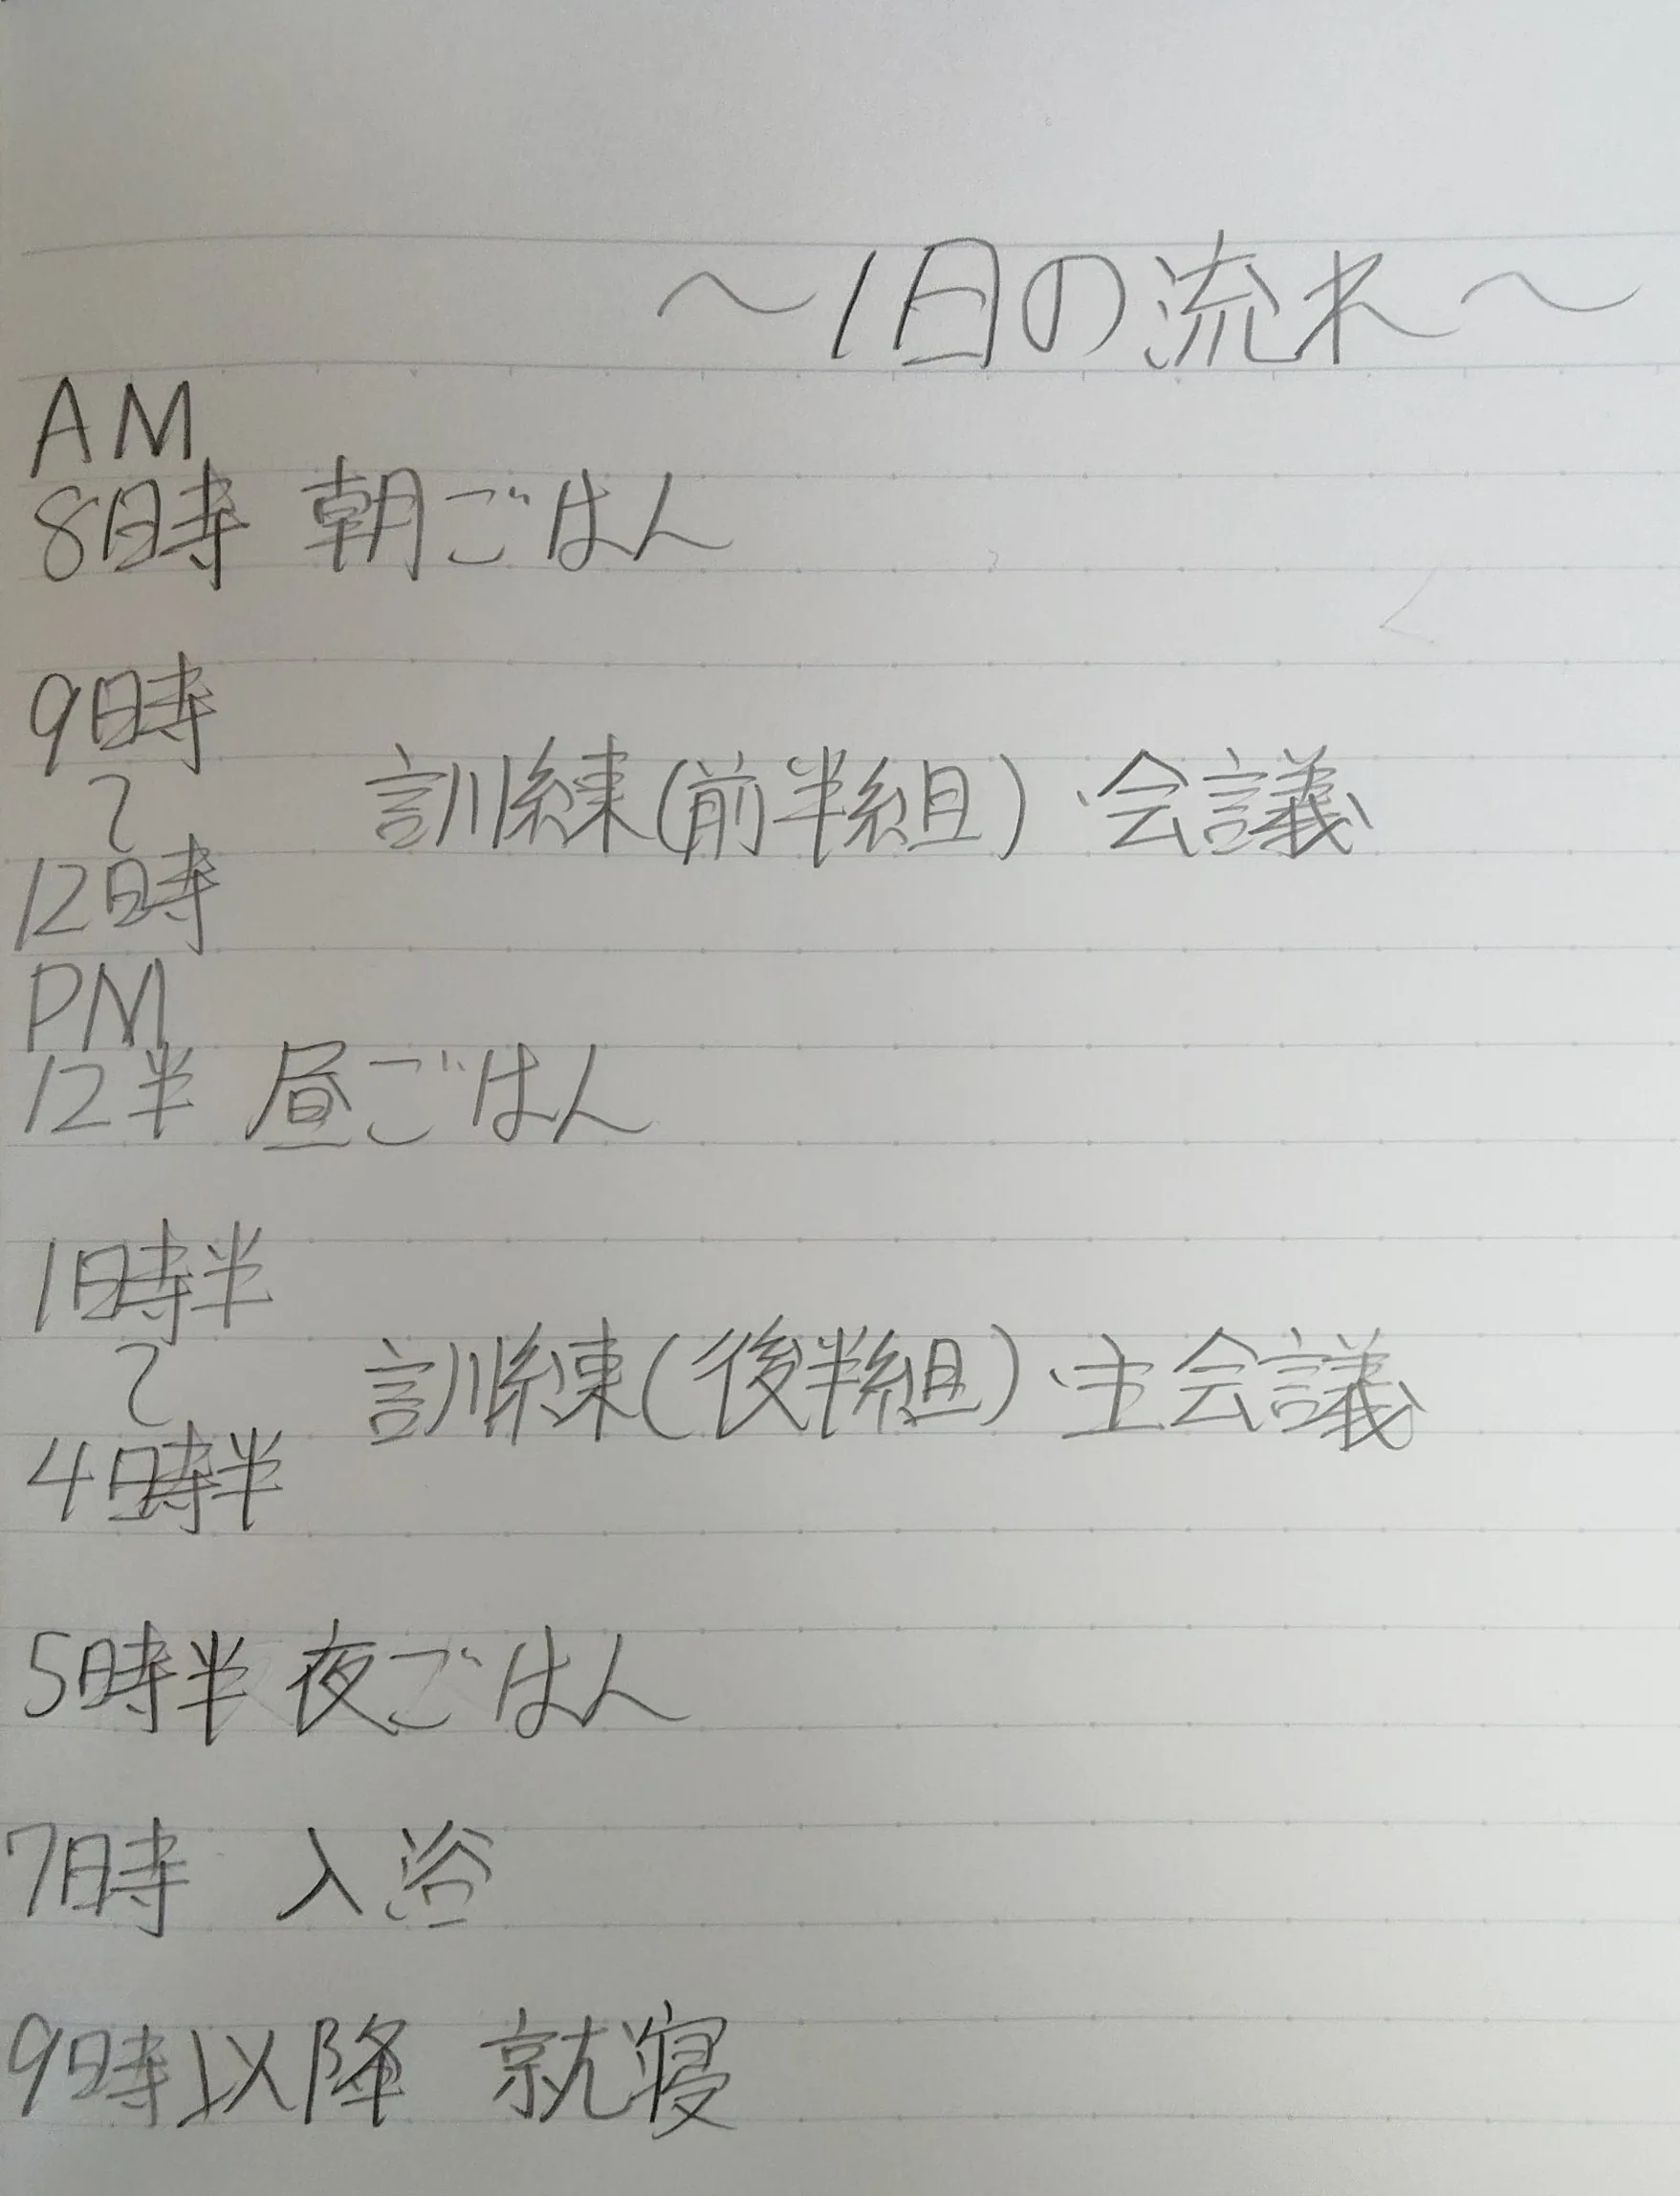 ～1日の流れ～
AM
8時 朝ごはん
9時
～ 訓練(前半組)・会議
12時
PM
12半 昼ごはん
1時半
～ 訓練(後半組)・主会議
4時半
5時半 夜ごはん
7時 入浴
9時以降 就寝